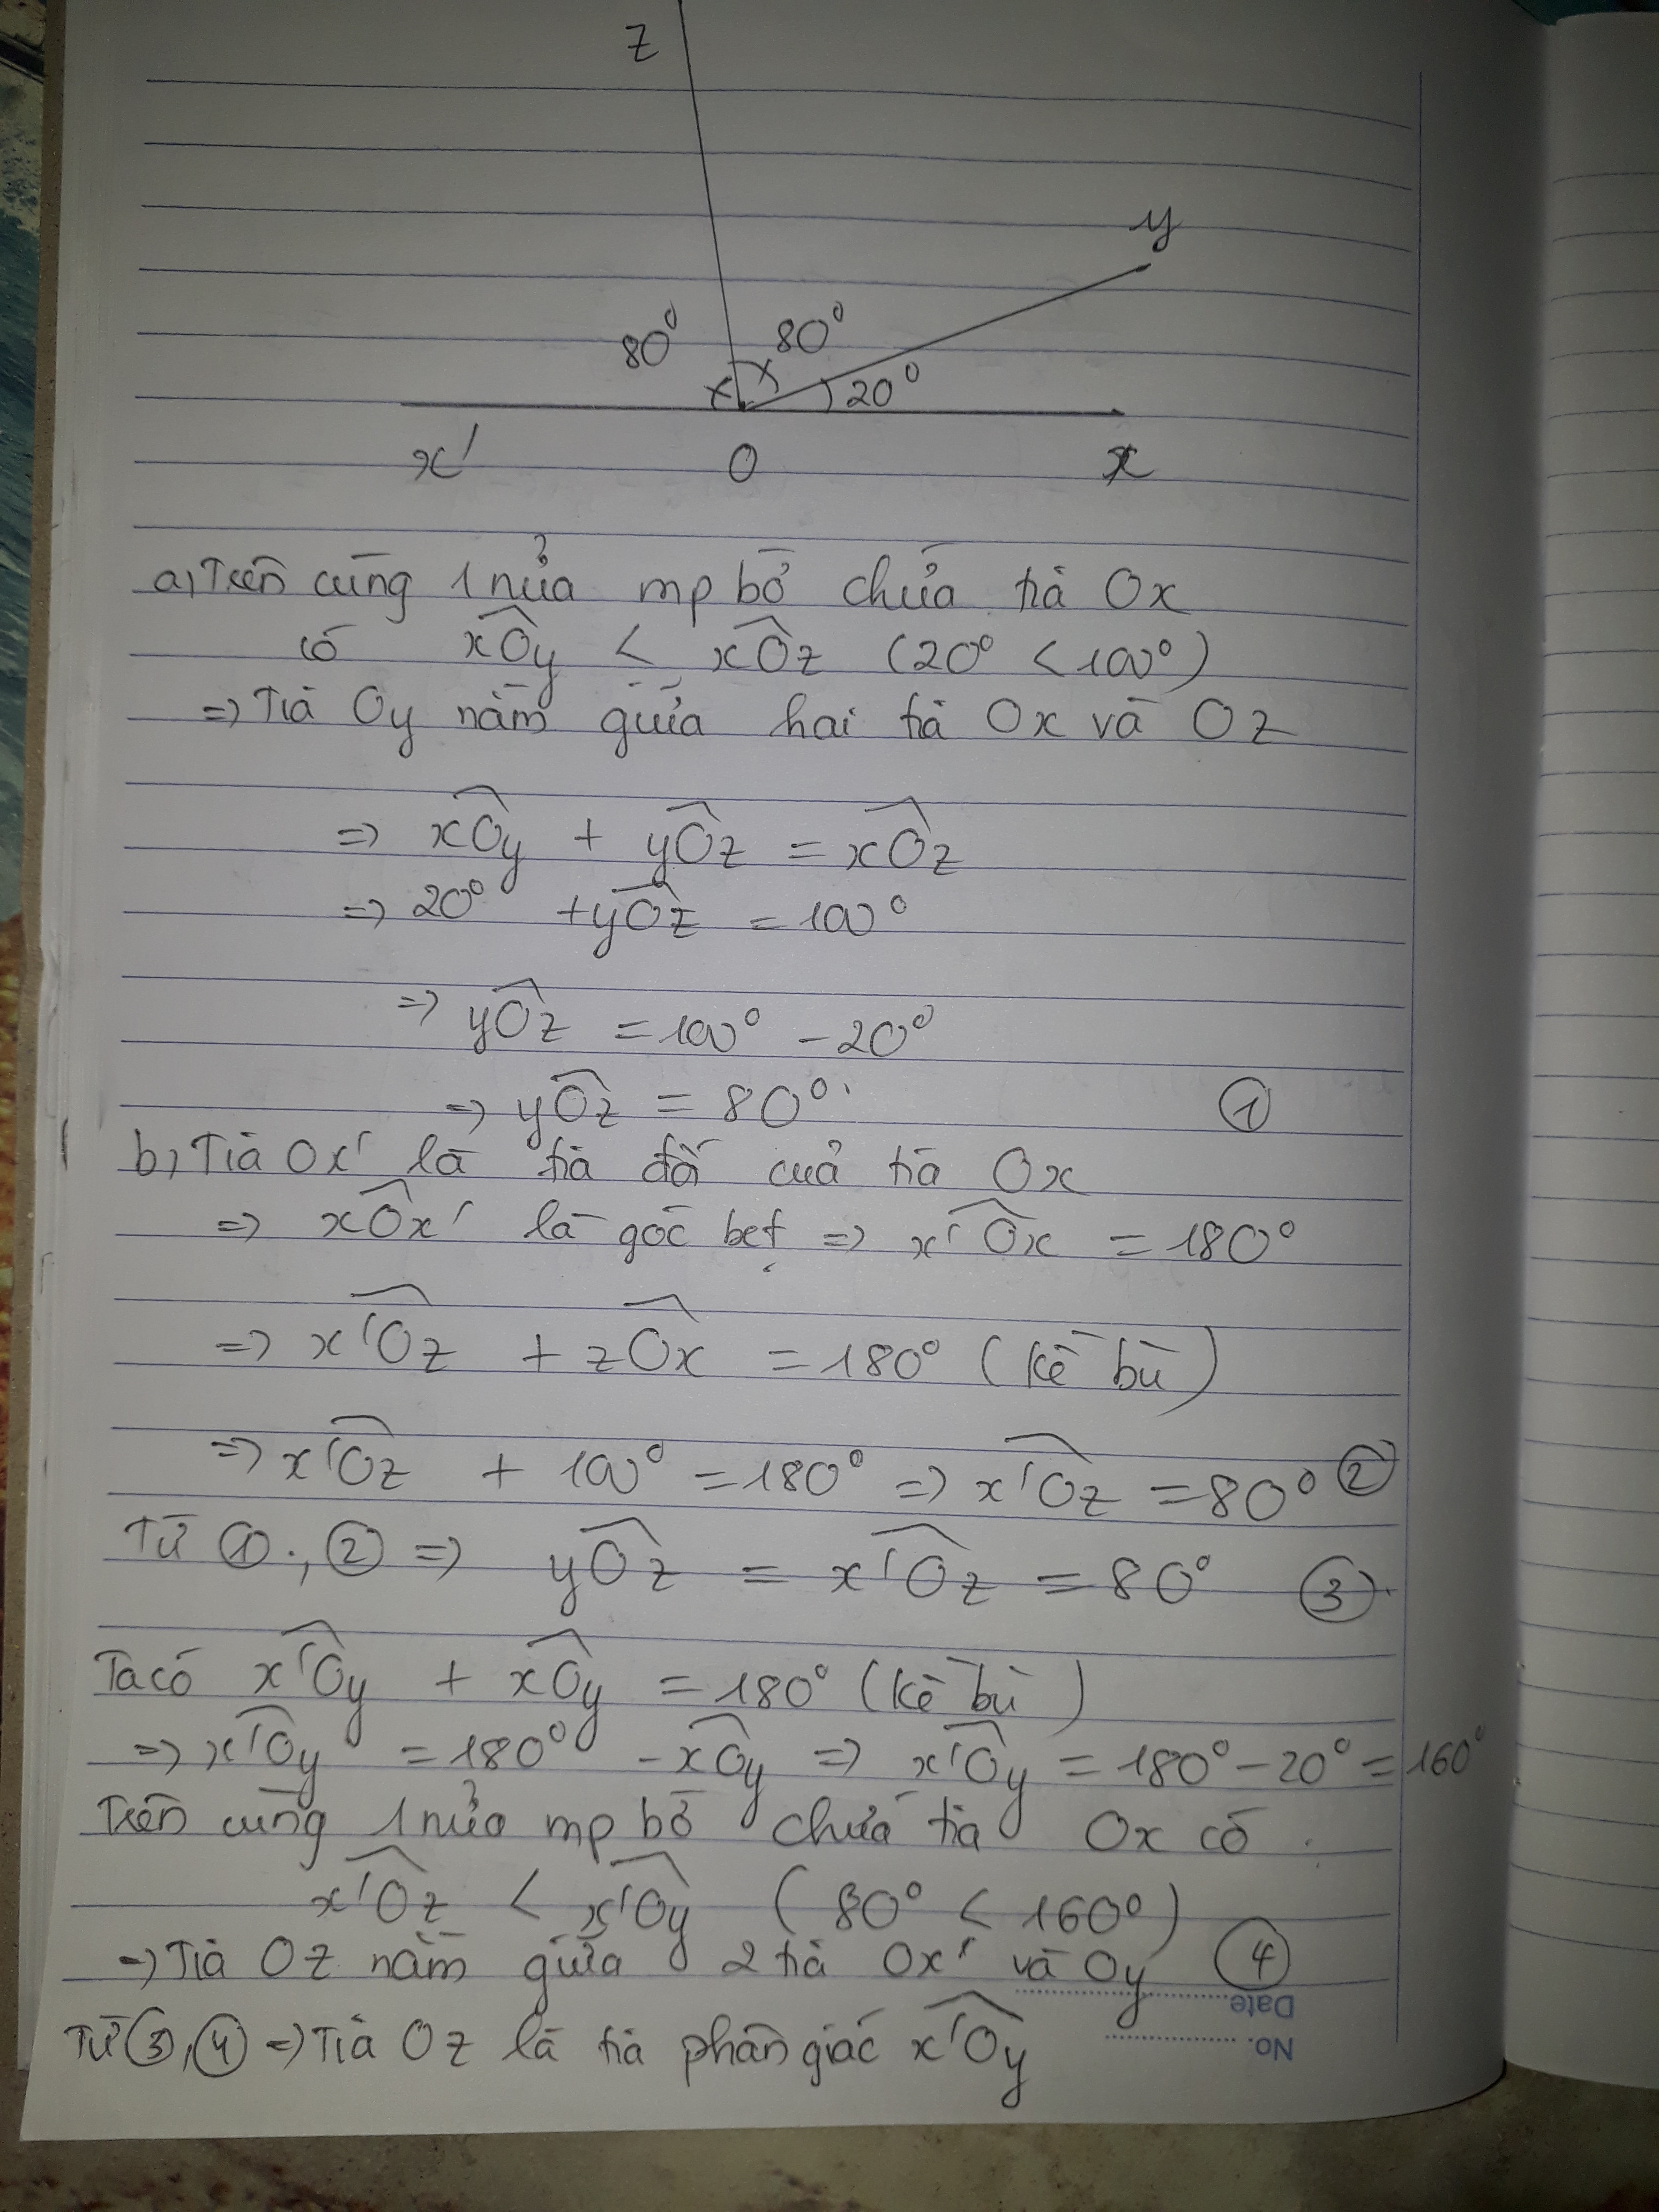 z
y
80° 80°
20°
x' O x
a, Trên cùng 1 nửa mp bờ chứa tia Ox
có xÔy < xÔz (20° < 100°)
=> Tia Oy nằm giữa hai tia Ox và Oz
=> xÔy + yÔz = xÔz
=> 20° + yÔz = 100°
=> yÔz = 100° - 20°
=> yÔz = 80°. ①
b, Tia Ox' là tia đối của tia Ox
=> xÔx' là góc bẹt => x'Ôx = 180°
=> x'Ôz + zÔx = 180° (kề bù)
=> x'Ôz + 100° = 180° => x'Ôz = 80° ②
Từ ①, ② => yÔz = x'Ôz = 80° ③
Ta có x'Ôy + xÔy = 180° (kề bù)
=> x'Ôy = 180° - xÔy => x'Ôy = 180° - 20° = 160°
Trên cùng 1 nửa mp bờ chứa tia Ox có
x'Ôz < x'Ôy (80° < 160°)
=> Tia Oz nằm giữa 2 tia Ox' và Oy ④
Date
Từ ③, ④ => Tia Oz là tia phân giác x'Ôy
No.